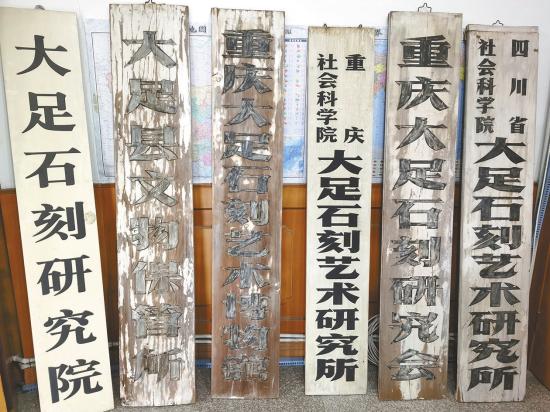 大足石刻研究院
大足县文物保管所
重庆大足石刻艺术博物馆
重庆
社会科学院
大足石刻艺术研究所
重庆大足石刻研究会
四川省
社会科学院
大足石刻艺术研究所